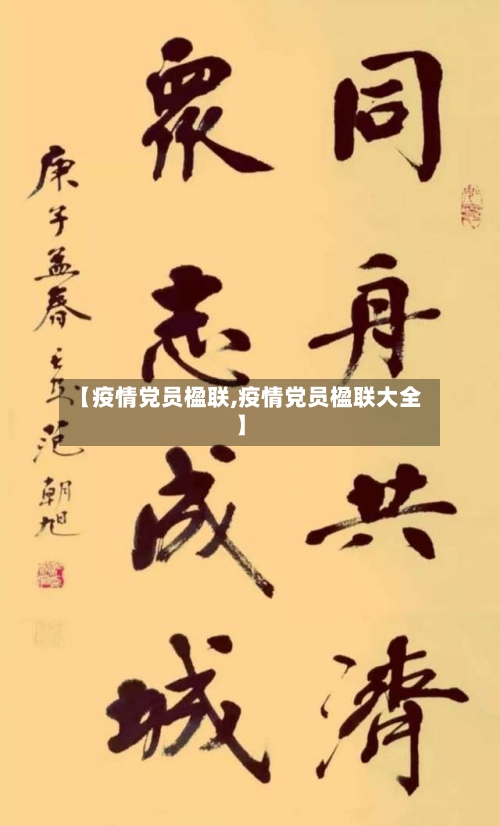 同舟共濟
眾志成城
庚子孟春
范朝旭
【疫情党员楹联,疫情党员楹联大全
】